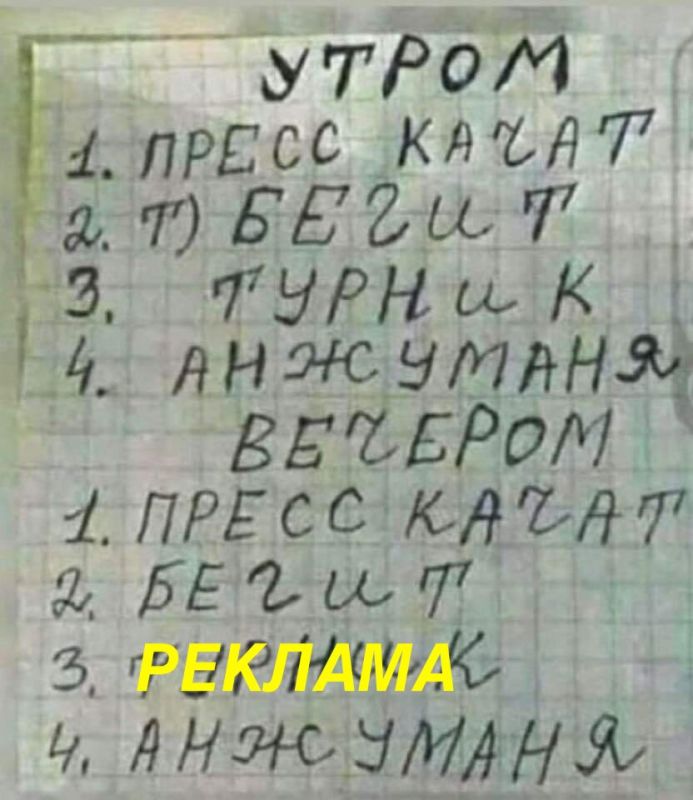 УТРОМ
1. ПРЕСС КАЧАТ
2. Т) БЕГИТ
3. ТУРНИК
4. АНЖУМАНЯ
ВЕЧЕРОМ
1. ПРЕСС КАЧАТ
2. БЕГИТ
3. РЕКЛАМА
4. АНЖУМАНЯ